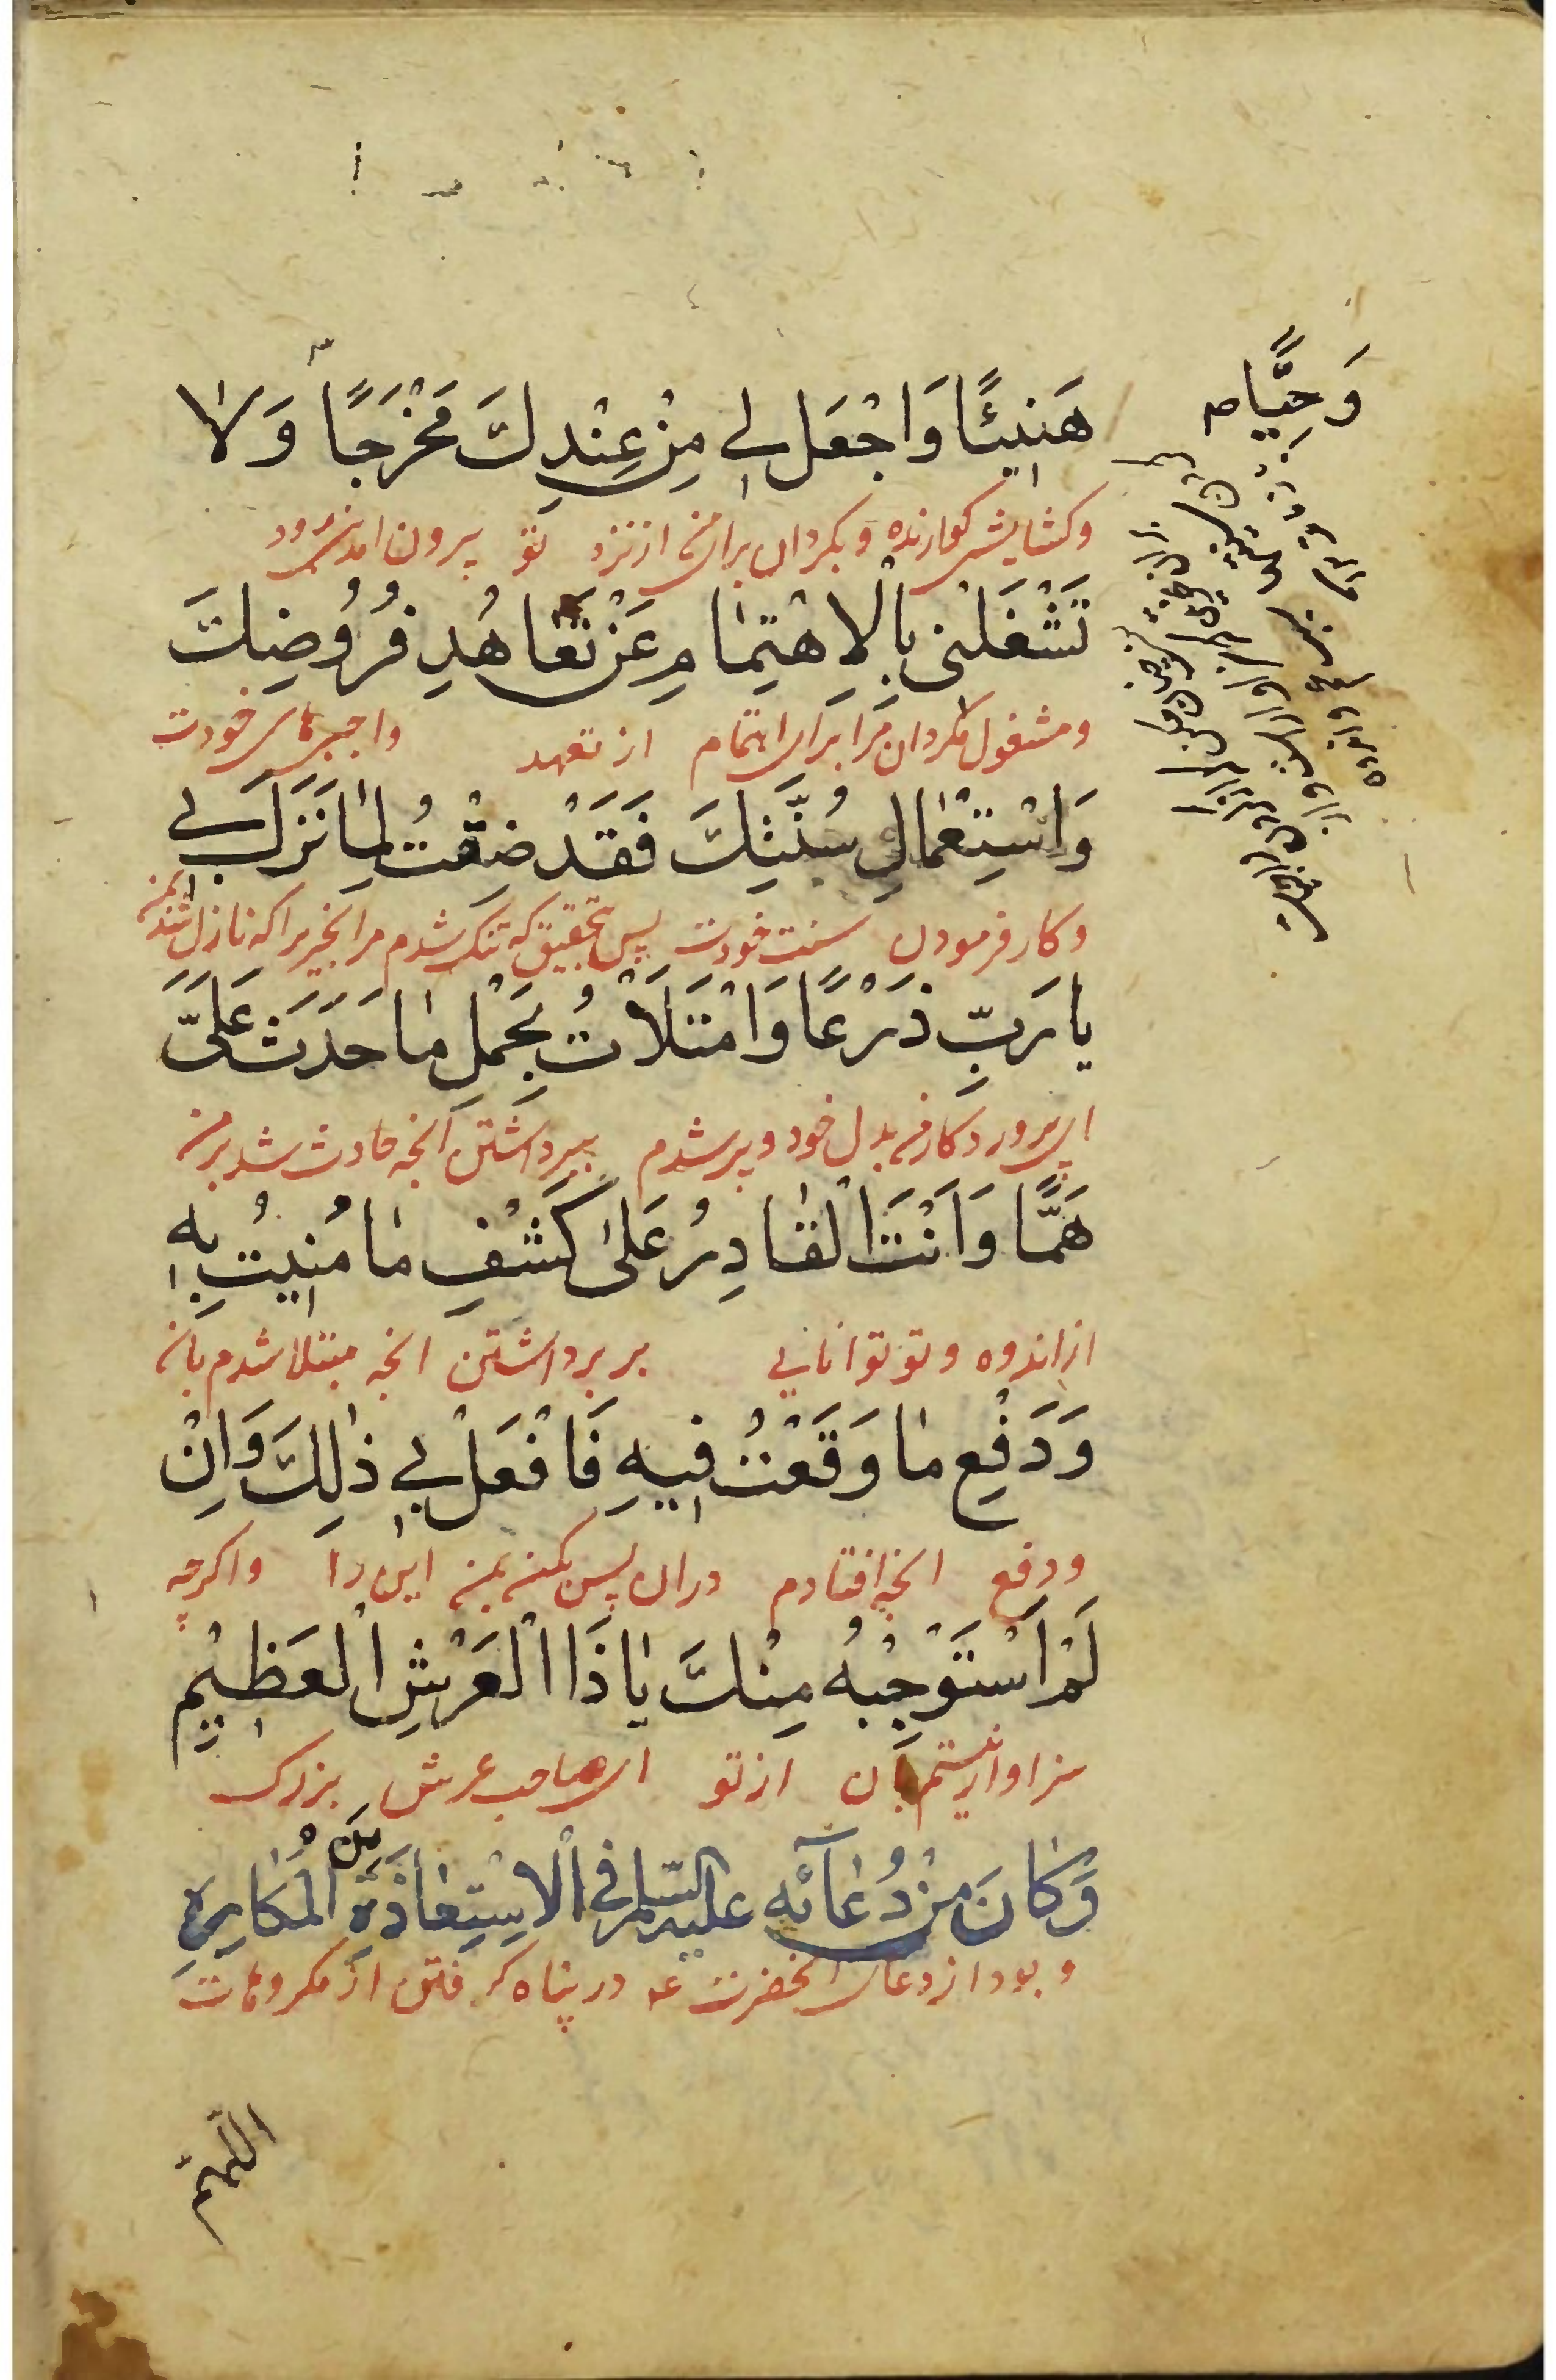 هَنِيئًا وَاجْعَل لِي مِنْ عِنْدِكَ مَخْرَجًا وَلَا
وَحِيًّا م
وكشايش كوارنده و بكردان براى من از نزد تو بيرون امدن زود
تَشْغَلْنِي بِالِاهْتِمَامِ عَنْ تَعَاهُدِ فُرُوضِكَ
و مشغول مكردان مرا براى اهتمام از تعهد واجبهاى خودت
وَاسْتِعْمَالِ سُنَّتِكَ فَقَدْ ضِقْتُ لِمَا نَزَلَ بِي
وكار فرمودن سنت خودت پس بتحقيق كه تنك شدم مر انجيزيرا كه نازل شد بمن
يَا رَبِّ ذَرْعًا وَامْتَلَأْتُ بِحَمْلِ مَا حَدَثَ عَلَيَّ
اى پروردكار من بدل خود و پر شدم ببرداشتن انچه حادث شد بر من
هَمًّا وَأَنْتَ الْقَادِرُ عَلَى كَشْفِ مَا مُنِيتُ بِهِ
از اندوه و تو توانايى بر برداشتن انچه مبتلا شدم بان
وَدَفْعِ مَا وَقَعْتُ فِيهِ فَافْعَلْ بِي ذَلِكَ وَاِنْ
ودفع انچه افتادم دران پس بكن بمن اين را واكرچه
لَمْ اَسْتَوْجِبْهُ مِنْكَ يَا ذَا الْعَرْشِ الْعَظِيمِ
سزاوار نيستم بان از تو اى صاحب عرش بزرك
وَكَانَ مِنْ دُعَائِهِ عليه السلم فِي الْاِسْتِعَاذَةِ مِنَ الْمَكَارِهِ
و بود از دعاى انحضرت ع در پناه كرفتن از مكروهات
اللّهمّ